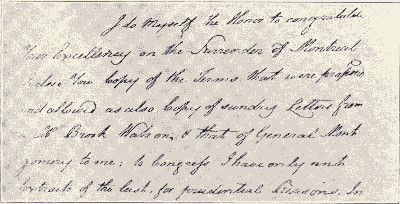 I do myself the Honor to congratulate
Your Excellency on the Surrender of Montreal
Inclose You Copy of the Terms that were propos'd
and allowed as also Copy of sundry Letters from
Mr Brook Watson, & that of General Mont
gomery to me; to Congress I have only sent
Extracts of the last, for prudential Reasons. In